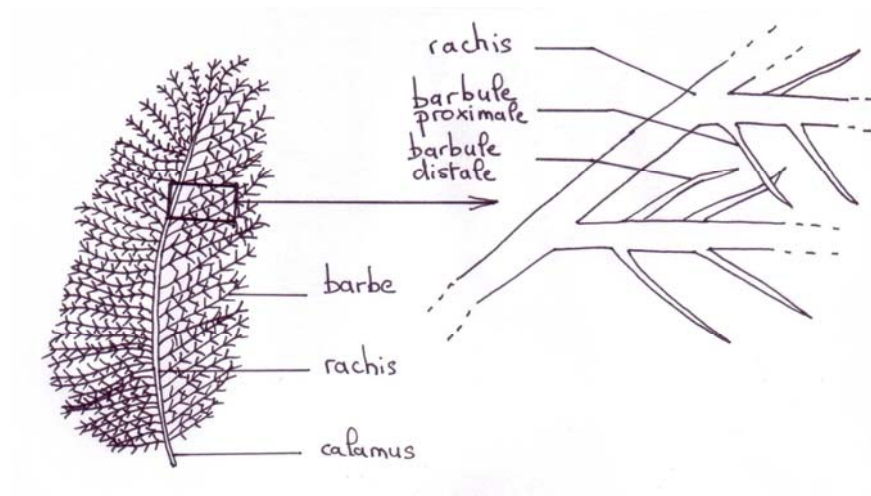 rachis
barbule
proximale
barbule
distale
barbe
rachis
calamus